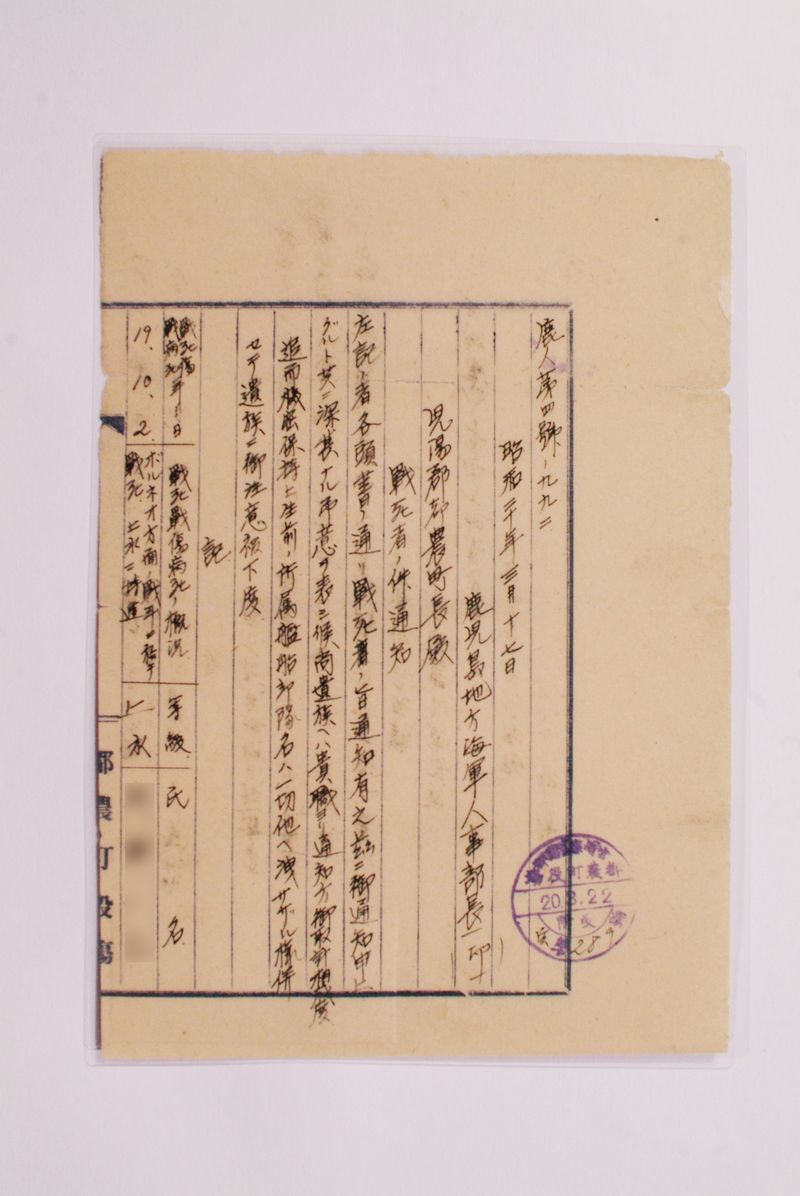 鹿人第四號ノ九九二
昭和二十年三月十七日
鹿児島地方海軍人事部長(印)
児湯郡都農町長殿
戦死者ノ件通知
左記ノ者各頭書ノ通リ戦死著ノ旨通知有之茲ニ御通知申上
グルト共ニ深甚ナル弔意ヲ表シ候尚遺族ヘハ貴職ヨリ通知方御取計相煩度
追而機密保持上生前ノ所属艦船部隊名ハ一切他ヘ洩サザル様併
セテ遺族ニ御注意被下度
記
戦死傷
戦病死 年月日
戦死戦傷病死ノ概況
等級
氏名
19.10.2
ボルネオ方面ノ戦斗ニ於テ
戦死 上水ニ特進
上水
都農町役場
都農町役場
20.3.22
289